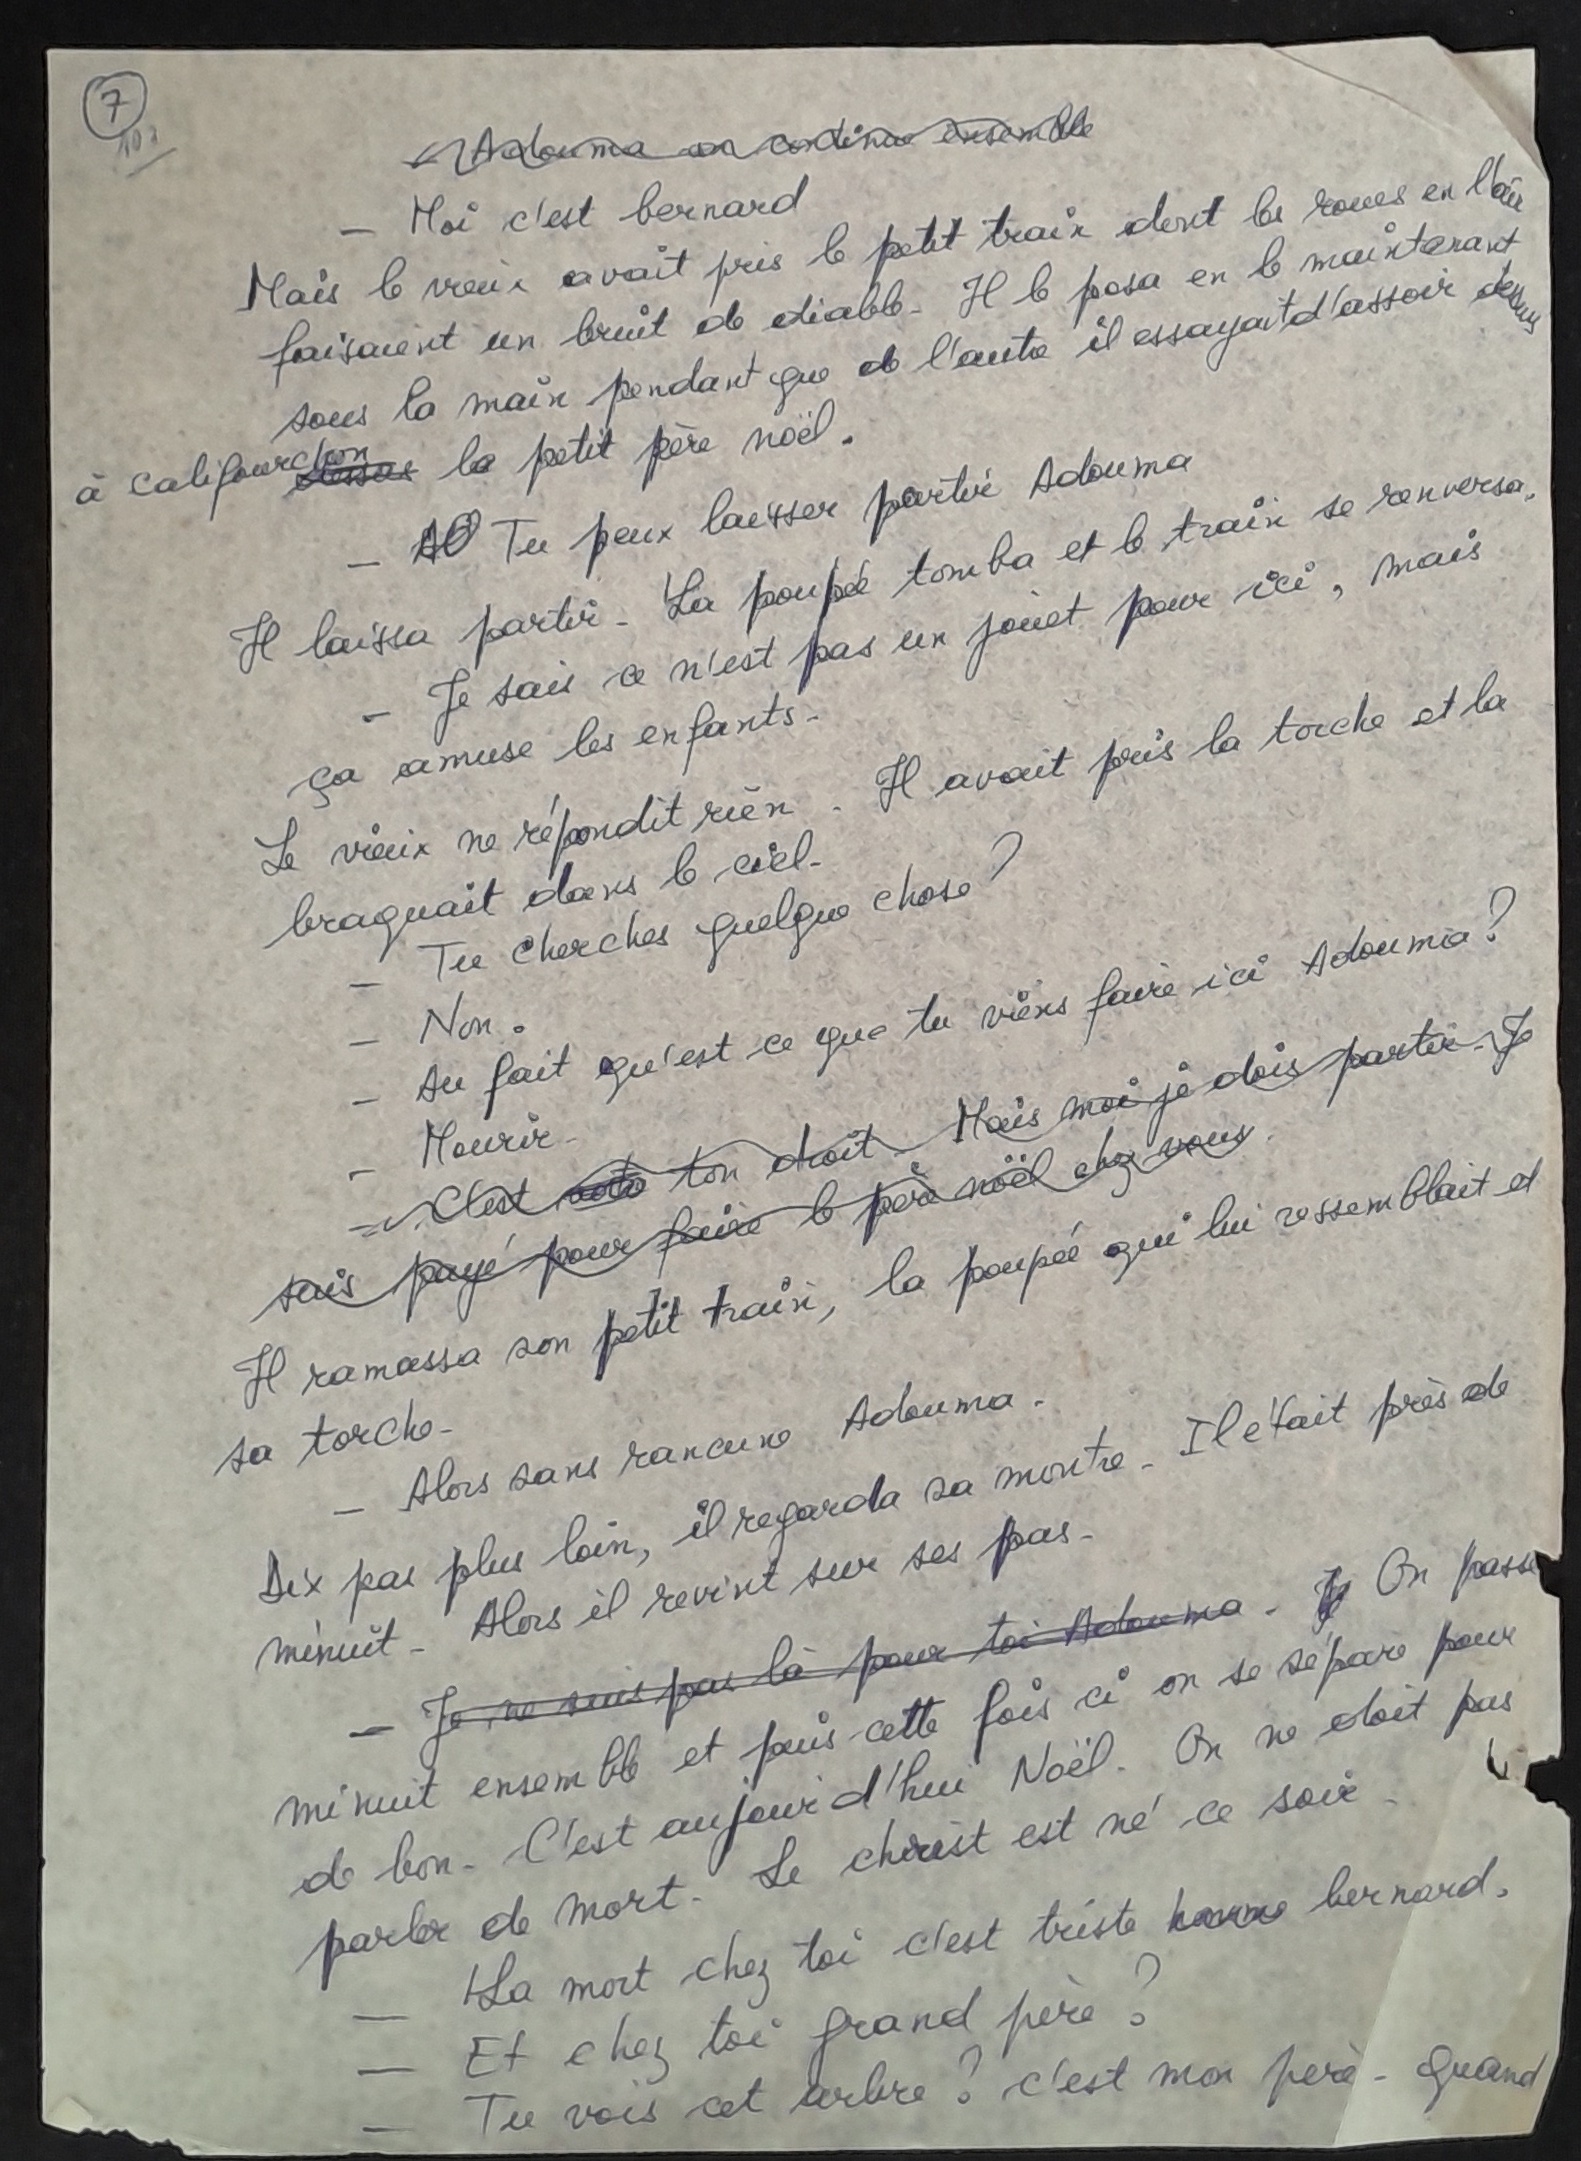 7
103
Adouma on continue ensemble
— Moi c'est bernard
Mais le vieux avait pris le petit train dont les roues en l'air
faisaient un bruit de diable. Il le posa en le maintenant
sous la main pendant que de l'autre il essayait d'assoir dessus
à califourchon dessus le petit père noël.
— Tu peux laisser partir Adouma
Il laissa partir. La poupée tomba et le train se renversa.
— Je sais ce n'est pas un jouet pour ici, mais
ça amuse les enfants.
Le vieux ne répondit rien. Il avait pris la torche et la
braquait dans le ciel.
— Tu cherches quelque chose ?
— Non.
— Au fait qu'est ce que tu viens faire ici Adouma ?
— Mourir.
— C'est ton droit. Mais moi je dois partir. Je
suis payé pour faire le père noël chez vous.
Il ramassa son petit train, la poupée qui lui ressemblait et
sa torche.
— Alors sans rancune Adouma.
Dix pas plus loin, il regarda sa montre. Il était près de
minuit. Alors il revint sur ses pas.
— Je ne suis pas là pour toi Adouma. Je On passe
minuit ensemble et puis cette fois ci on se sépare pour
de bon. C'est aujourd'hui Noël. On ne doit pas
parler de mort. Le christ est né ce soir.
— La mort chez toi c'est triste bernard.
— Et chez toi grand père ?
— Tu vois cet arbre ? c'est mon père. Quand